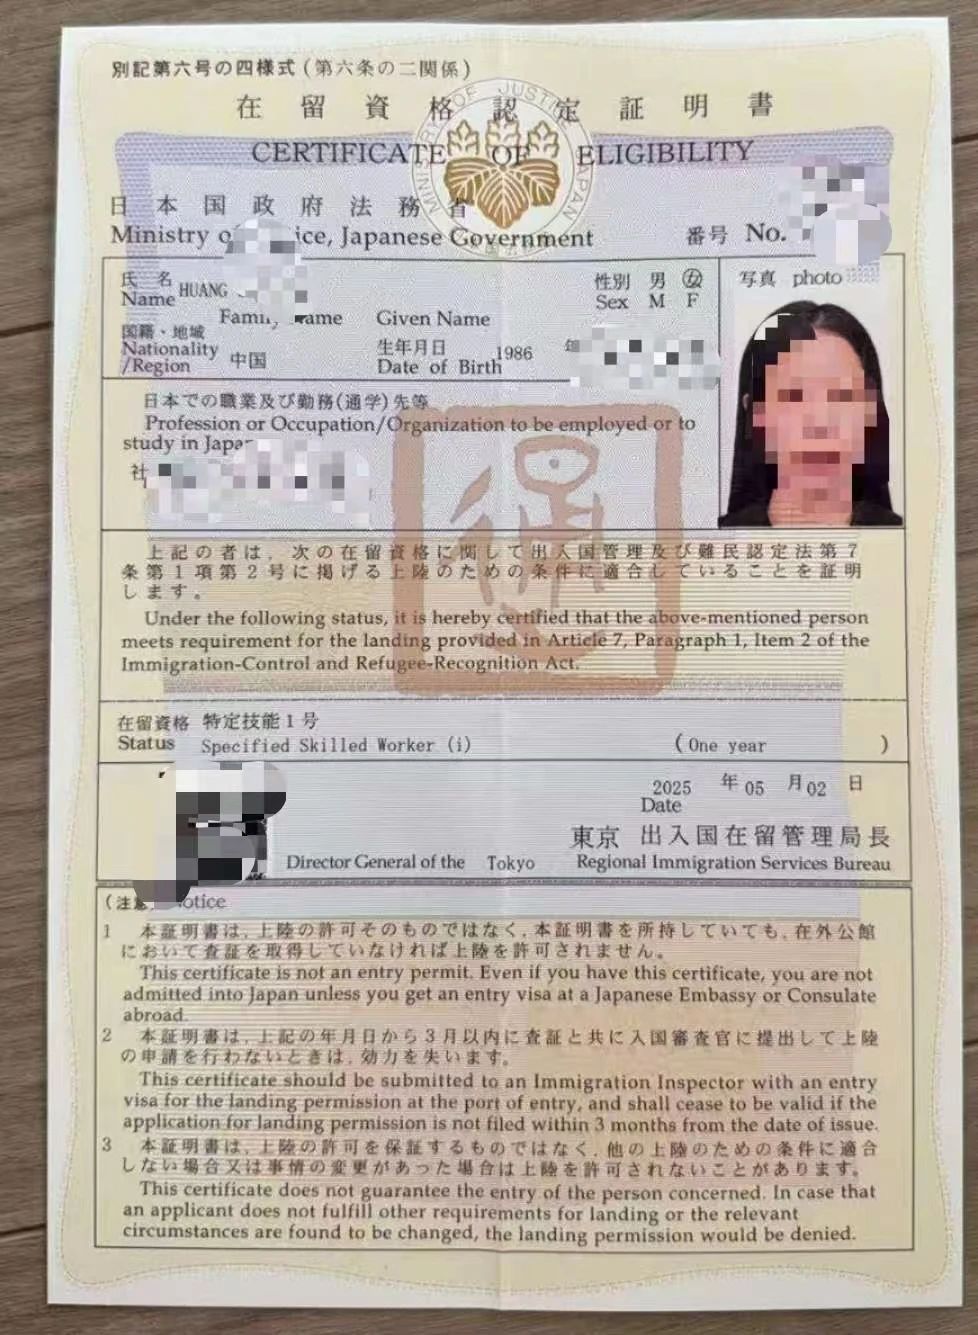 別記第六号の四様式(第六条の二関係)
在留資格認定証明書
MINISTRY OF JUSTICE JAPAN
CERTIFICATE OF ELIGIBILITY
日本国政府法務省
Ministry ice, Japanese Government
番号 No.
氏名
Name HUANG
Family Name Given Name
性別 男 女
Sex M F
写真 photo
国籍・地域
Nationality
/Region 中国
生年月日
Date of Birth 1986 年
日本での職業及び勤務(通学)先等
Profession or Occupation/Organization to be employed or to
study in Japan
社
適
上記の者は、次の在留資格に関して出入国管理及び難民認定法第7
条第1項第2号に掲げる上陸のための条件に適合していることを証明
します。
Under the following status, it is hereby certified that the above-mentioned person
meets requirement for the landing provided in Article 7, Paragraph 1, Item 2 of the
Immigration-Control and Refugee-Recognition Act.
在留資格 特定技能1号
Status Specified Skilled Worker (i) (One year )
2025 年 05 月 02 日
Date
東京 出入国在留管理局長
Director General of the Tokyo Regional Immigration Services Bureau
(注意) Notice
1 本証明書は、上陸の許可そのものではなく、本証明書を所持していても、在外公館
において査証を取得していなければ上陸を許可されません。
This certificate is not an entry permit. Even if you have this certificate, you are not
admitted into Japan unless you get an entry visa at a Japanese Embassy or Consulate
abroad.
2 本証明書は、上記の年月日から3月以内に査証と共に入国審査官に提出して上陸
の申請を行わないときは、効力を失います。
This certificate should be submitted to an Immigration Inspector with an entry
visa for the landing permission at the port of entry, and shall cease to be valid if the
application for landing permission is not filed within 3 months from the date of issue.
3 本証明書は、上陸の許可を保証するものではなく、他の上陸のための条件に適合
しない場合又は事情の変更があった場合は上陸を許可されないことがあります。
This certificate does not guarantee the entry of the person concerned. In case that
an applicant does not fulfill other requirements for landing or the relevant
circumstances are found to be changed, the landing permission would be denied.